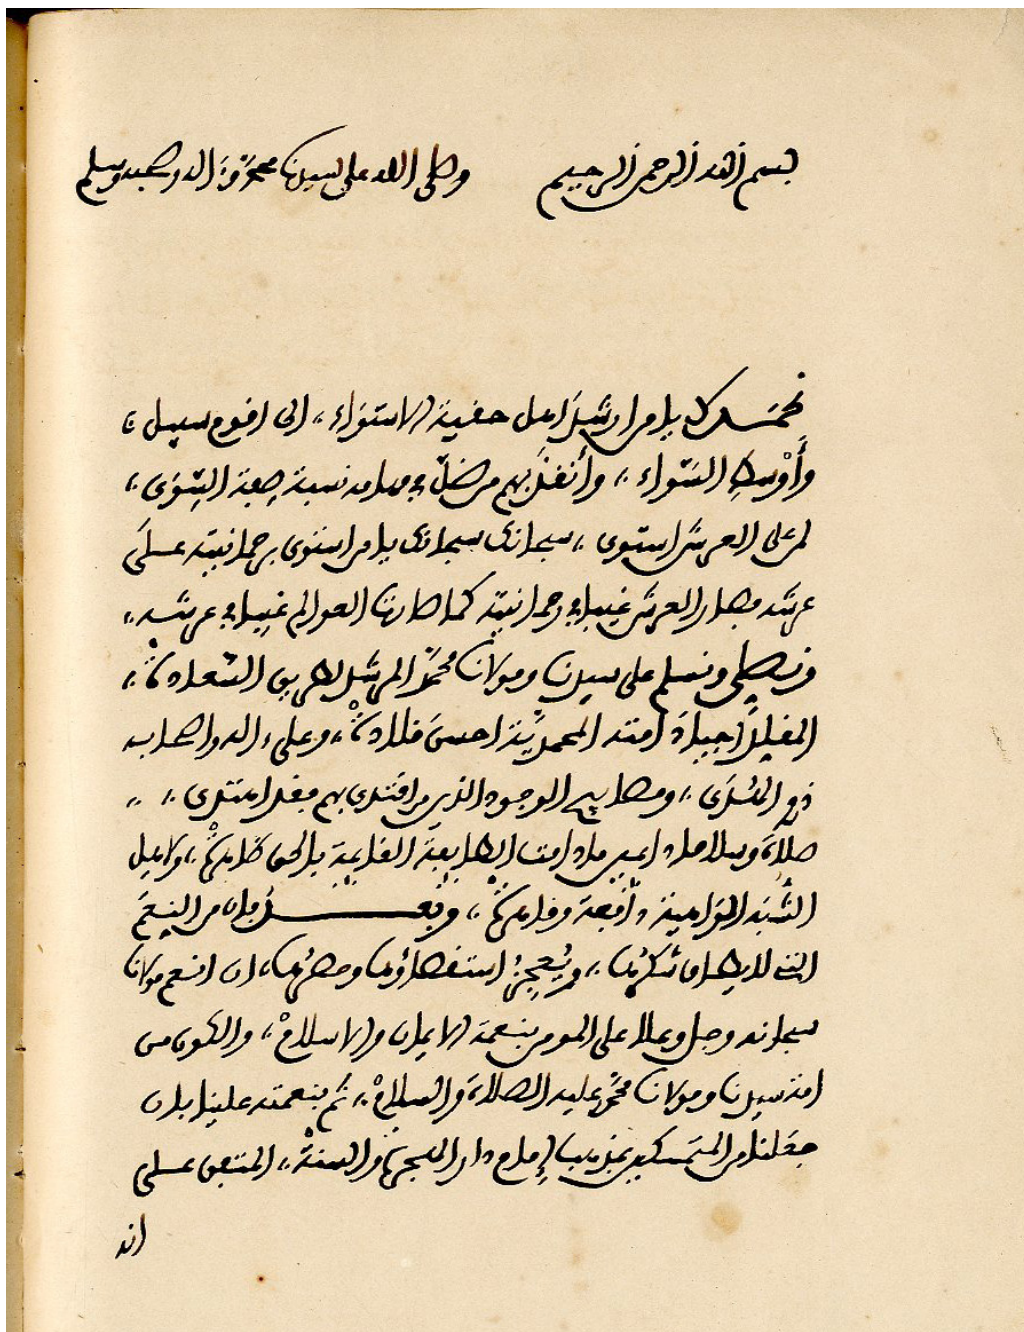 بسم الله الرحمن الرحيم وصلى الله على سيدنا محمد وآله وصحبه وسلم
نحمدك يا من ارشد اهل حقيقة الاستواء، الى اقوم سبيل،
وأوسط السواء، وأنقذ بهم من ضل في مهامه نسبة صفة السوى،
لمن على العرش استوى، سبحانك سبحانك يا من استوى برحمانيته على
عرشه فصار العرش غيبا في رحمانيته كما صارت العوالم غيبا في عرشه،
ونصلي ونسلم على سيدنا ومولانا محمد المرشد لطريق السعادة،
المقلد اجياد امته المحمدية احسن قلادة، وعلى ءاله واصحابه
ذوي الهدى، ومصابيح الوجود الذين من اقتدى بهم فقد اهتدى،
صلاة وسلاما دايمين ما دامت الطايفة القايمة بالحق ظاهرة، ولاهل
الشبه الواهية دافعة وقاهرة، وبعد فان من النعم
التي لا يطاق شكرها، ويعجز استقصاؤها وحصرها، ان انعم مولانا
سبحانه وجل وعلا على المومن بنعمة الايمان والاسلام، والكون من
امة سيدنا ومولانا محمد عليه الصلاة والسلام، ثم بنعمته علينا بان
جعلنا من المتمسكين بمذهب إمام دار الهجرة والسنة، المتفق على
انه